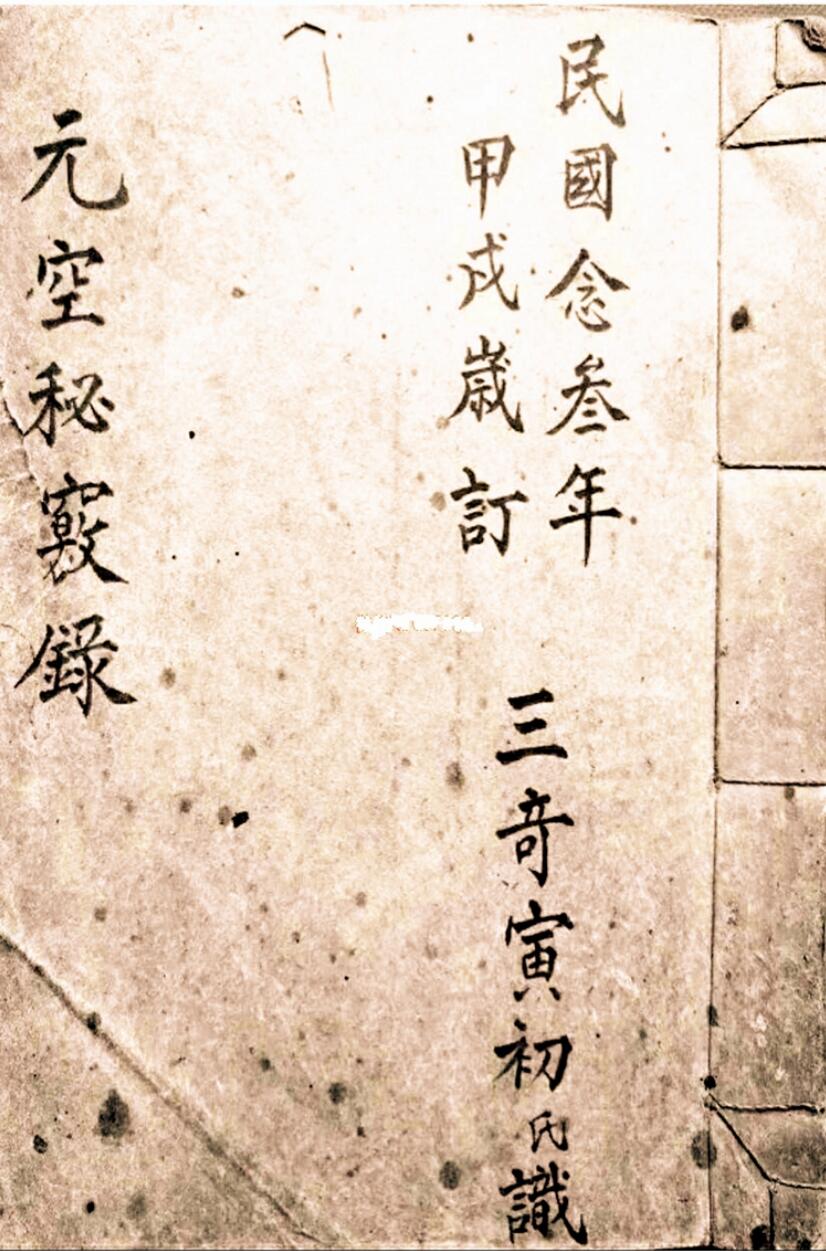 民國念叄年
甲戌歲訂
三奇寅初氏識
元空秘竅錄